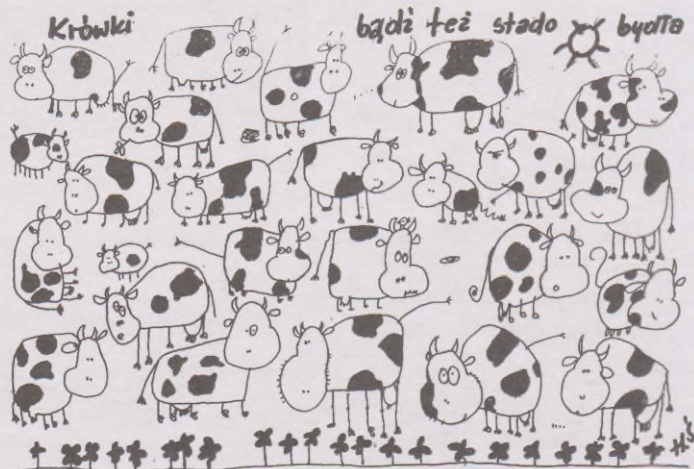 Krówki bądź też stado bydła